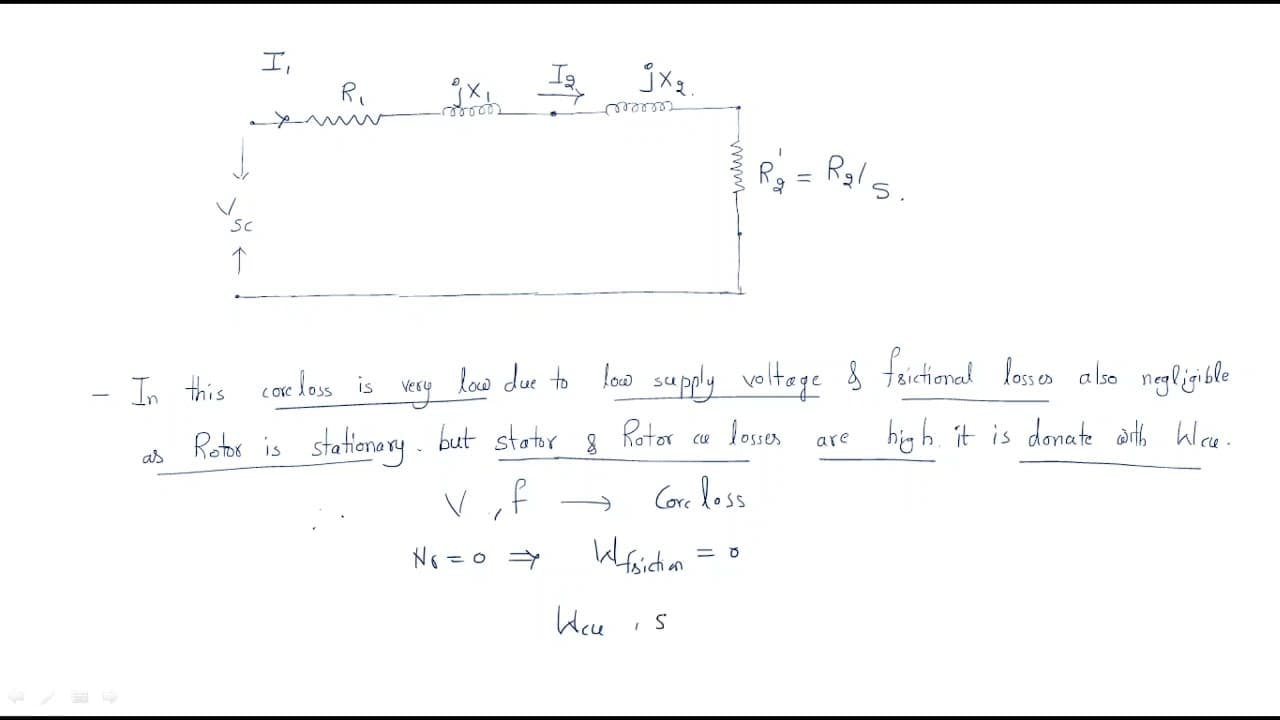 I₁
R₁
jX₁
I₂
jX₂.
R₂' = R₂/S.
V
SC
- In this coreloss is very low due to low supply voltage & frictional losses also negligible
as Rotor is stationary. but stator & Rotor cu losses are high. it is donate with Wcu.
V , f → Core loss
Nr = 0 ⇒ Wfriction = 0
Wcu , s